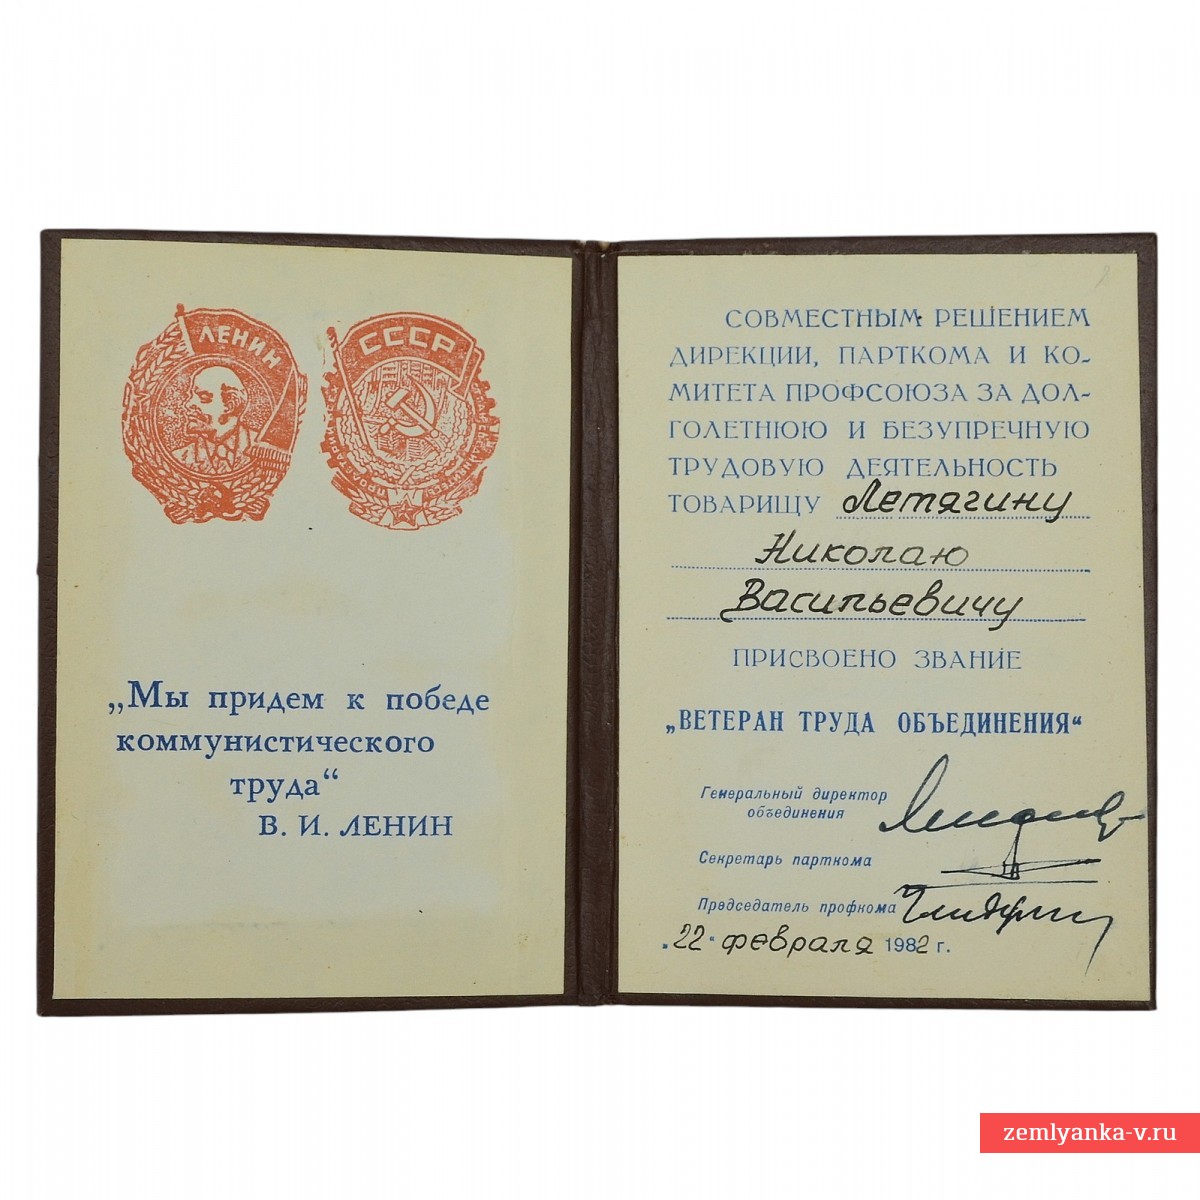 ЛЕНИН
СССР
„Мы придем к победе
коммунистического
труда“
В. И. ЛЕНИН
СОВМЕСТНЫМ РЕШЕНИЕМ
ДИРЕКЦИИ, ПАРТКОМА И КО-
МИТЕТА ПРОФСОЮЗА ЗА ДОЛ-
ГОЛЕТНЮЮ И БЕЗУПРЕЧНУЮ
ТРУДОВУЮ ДЕЯТЕЛЬНОСТЬ
ТОВАРИЩУ Летягину
Николаю
Васильевичу
ПРИСВОЕНО ЗВАНИЕ
„ВЕТЕРАН ТРУДА ОБЪЕДИНЕНИЯ“
Генеральный директор
объединения
Секретарь парткома
Председатель профкома
„22“ февраля 1982 г.
zemlyanka-v.ru